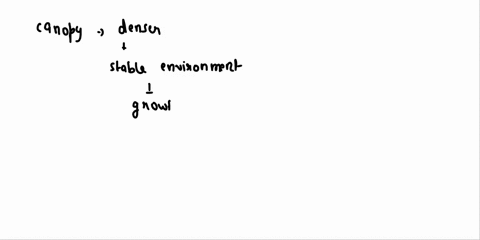 canopy → denser
↓
stable environment
↓
grow